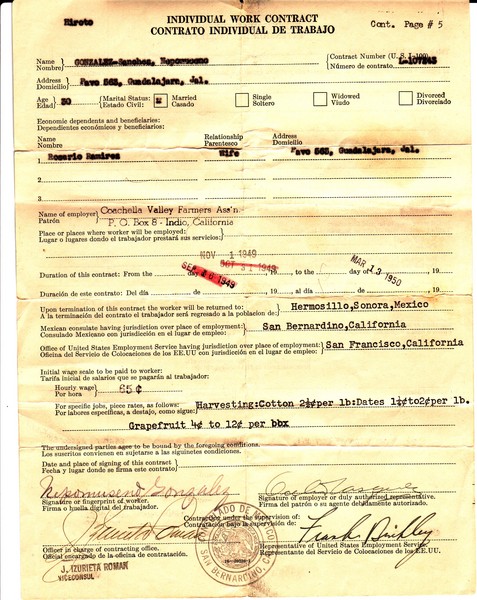 Hiroto
INDIVIDUAL WORK CONTRACT
CONTRATO INDIVIDUAL DE TRABAJO
Cont. Page #5
Name
Nombre
GONZALEZ-Sanchez, Nepomuceno
Contract Number (U. S. I-100)
Número de contrato
L-107243
Address
Domicilio
Pavo 563, Guadalajara, Jal.
Age
Edad
30
Marital Status:
Estado Civil:
Married
Casado
Single
Soltero
Widowed
Viudo
Divorced
Divorciado
Economic dependents and beneficiaries:
Dependientes económicos y beneficiarios:
Name
Nombre
Relationship
Parentesco
Address
Domicilio
1. Rosario Ramirez Wife Pavo 563, Guadalajara, Jal.
2.
3.
Name of employer
Patrón
Coachella Valley Farmers Ass'n.
P. O. Box 8 - Indio, California
Place or places where worker will be employed:
Lugar o lugares donde el trabajador prestará sus servicios:
NOV 1 1949
OCT 31 1949
Duration of this contract: From the day of 19 to the day of , 19
SEP 20 1949
MAR 13 1950
Duración de este contrato: Del día de 19 al día de , 19
Upon termination of this contract the worker will be returned to:
A la terminación del contrato el trabajador será regresado a la poblacion de:
Hermosillo,Sonora,Mexico
Mexican consulate having jurisdiction over place of employment:
Consulado Mexicano con jurisdicción en el lugar de empleo:
San Bernardino,California
Office of United States Employment Service having jurisdiction over place of employment:
Oficina del Servicio de Colocaciones de los EE.UU con jurisdicción en el lugar de empleo:
San Francisco,California
Initial wage scale to be paid to worker:
Tarifa inicial de salarios que se pagarán al trabajador:
Hourly wage
Por hora
65¢
For specific jobs, piece rates, as follows:
Por labores específicas, a destajo, como sigue:
Harvesting:Cotton 2½¢per lb:Dates 1¼¢to2¢per lb.
Grapefruit 4¢ to 12¢ per bbx
The undersigned parties agree to be bound by the foregoing conditions.
Los suscritos convienen en sujetarse a las siguientes condiciones.
Date and place of signing of this contract
Fecha y lugar donde se firma este contrato
Nepomuseno Gonzalez
Signature or fingerprint of worker.
Firma o huella digital del trabajador.
Signature of employer or duly authorized representative.
Firma del patrón o su agente debidamente autorizado.
Contracted under the supervision of:
Contratación bajo la supervisión de:
Officer in charge of contracting office.
Oficial encargado de la oficina de contratación.
Representative of United States Employment Service.
Representante del Servicio de Colocaciones de los EE.UU.
J. IZURIETA ROMAN
VICECONSUL
CONSULADO DE MEXICO
SAN BERNARDINO, CAL.